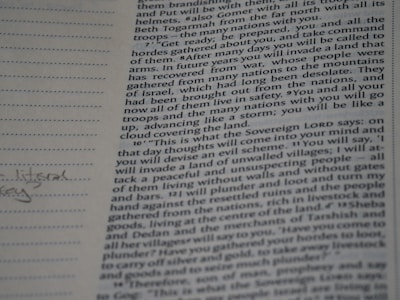 them brandishing their
and Put will be with them, all
helmets, ⁶also Gomer with all its troops,
Beth Togarmah from the far north with all its
troops — the many nations with you.
⁷"'Get ready; be prepared, you and all the
hordes gathered about you, and take command
of them. ⁸After many days you will be called to
arms. In future years you will invade a land that
has recovered from war, whose people were
gathered from many nations to the mountains
of Israel, which had long been desolate. They
had been brought out from the nations, and
now all of them live in safety. ⁹You and all your
troops and the many nations with you will go
up, advancing like a storm; you will be like a
cloud covering the land.
¹⁰"'This is what the Sovereign LORD says: on
that day thoughts will come into your mind and
you will devise an evil scheme. ¹¹You will say, 'I
will invade a land of unwalled villages; I will at-
tack a peaceful and unsuspecting people — all
of them living without walls and without gates
and bars. ¹²I will plunder and loot and turn my
hand against the resettled ruins and the people
gathered from the nations, rich in livestock and
goods, living at the centre of the land.' ¹³Sheba
and Dedan and the merchants of Tarshish and
all her villages will say to you, 'Have you come to
plunder? Have you gathered your hordes to loot,
to carry off silver and gold, to take away livestock
and goods and to seize much plunder?'"
¹⁴'Therefore, son of man, prophesy and say
to Gog: 'This is what the Sovereign LORD says:
people Israel are living in